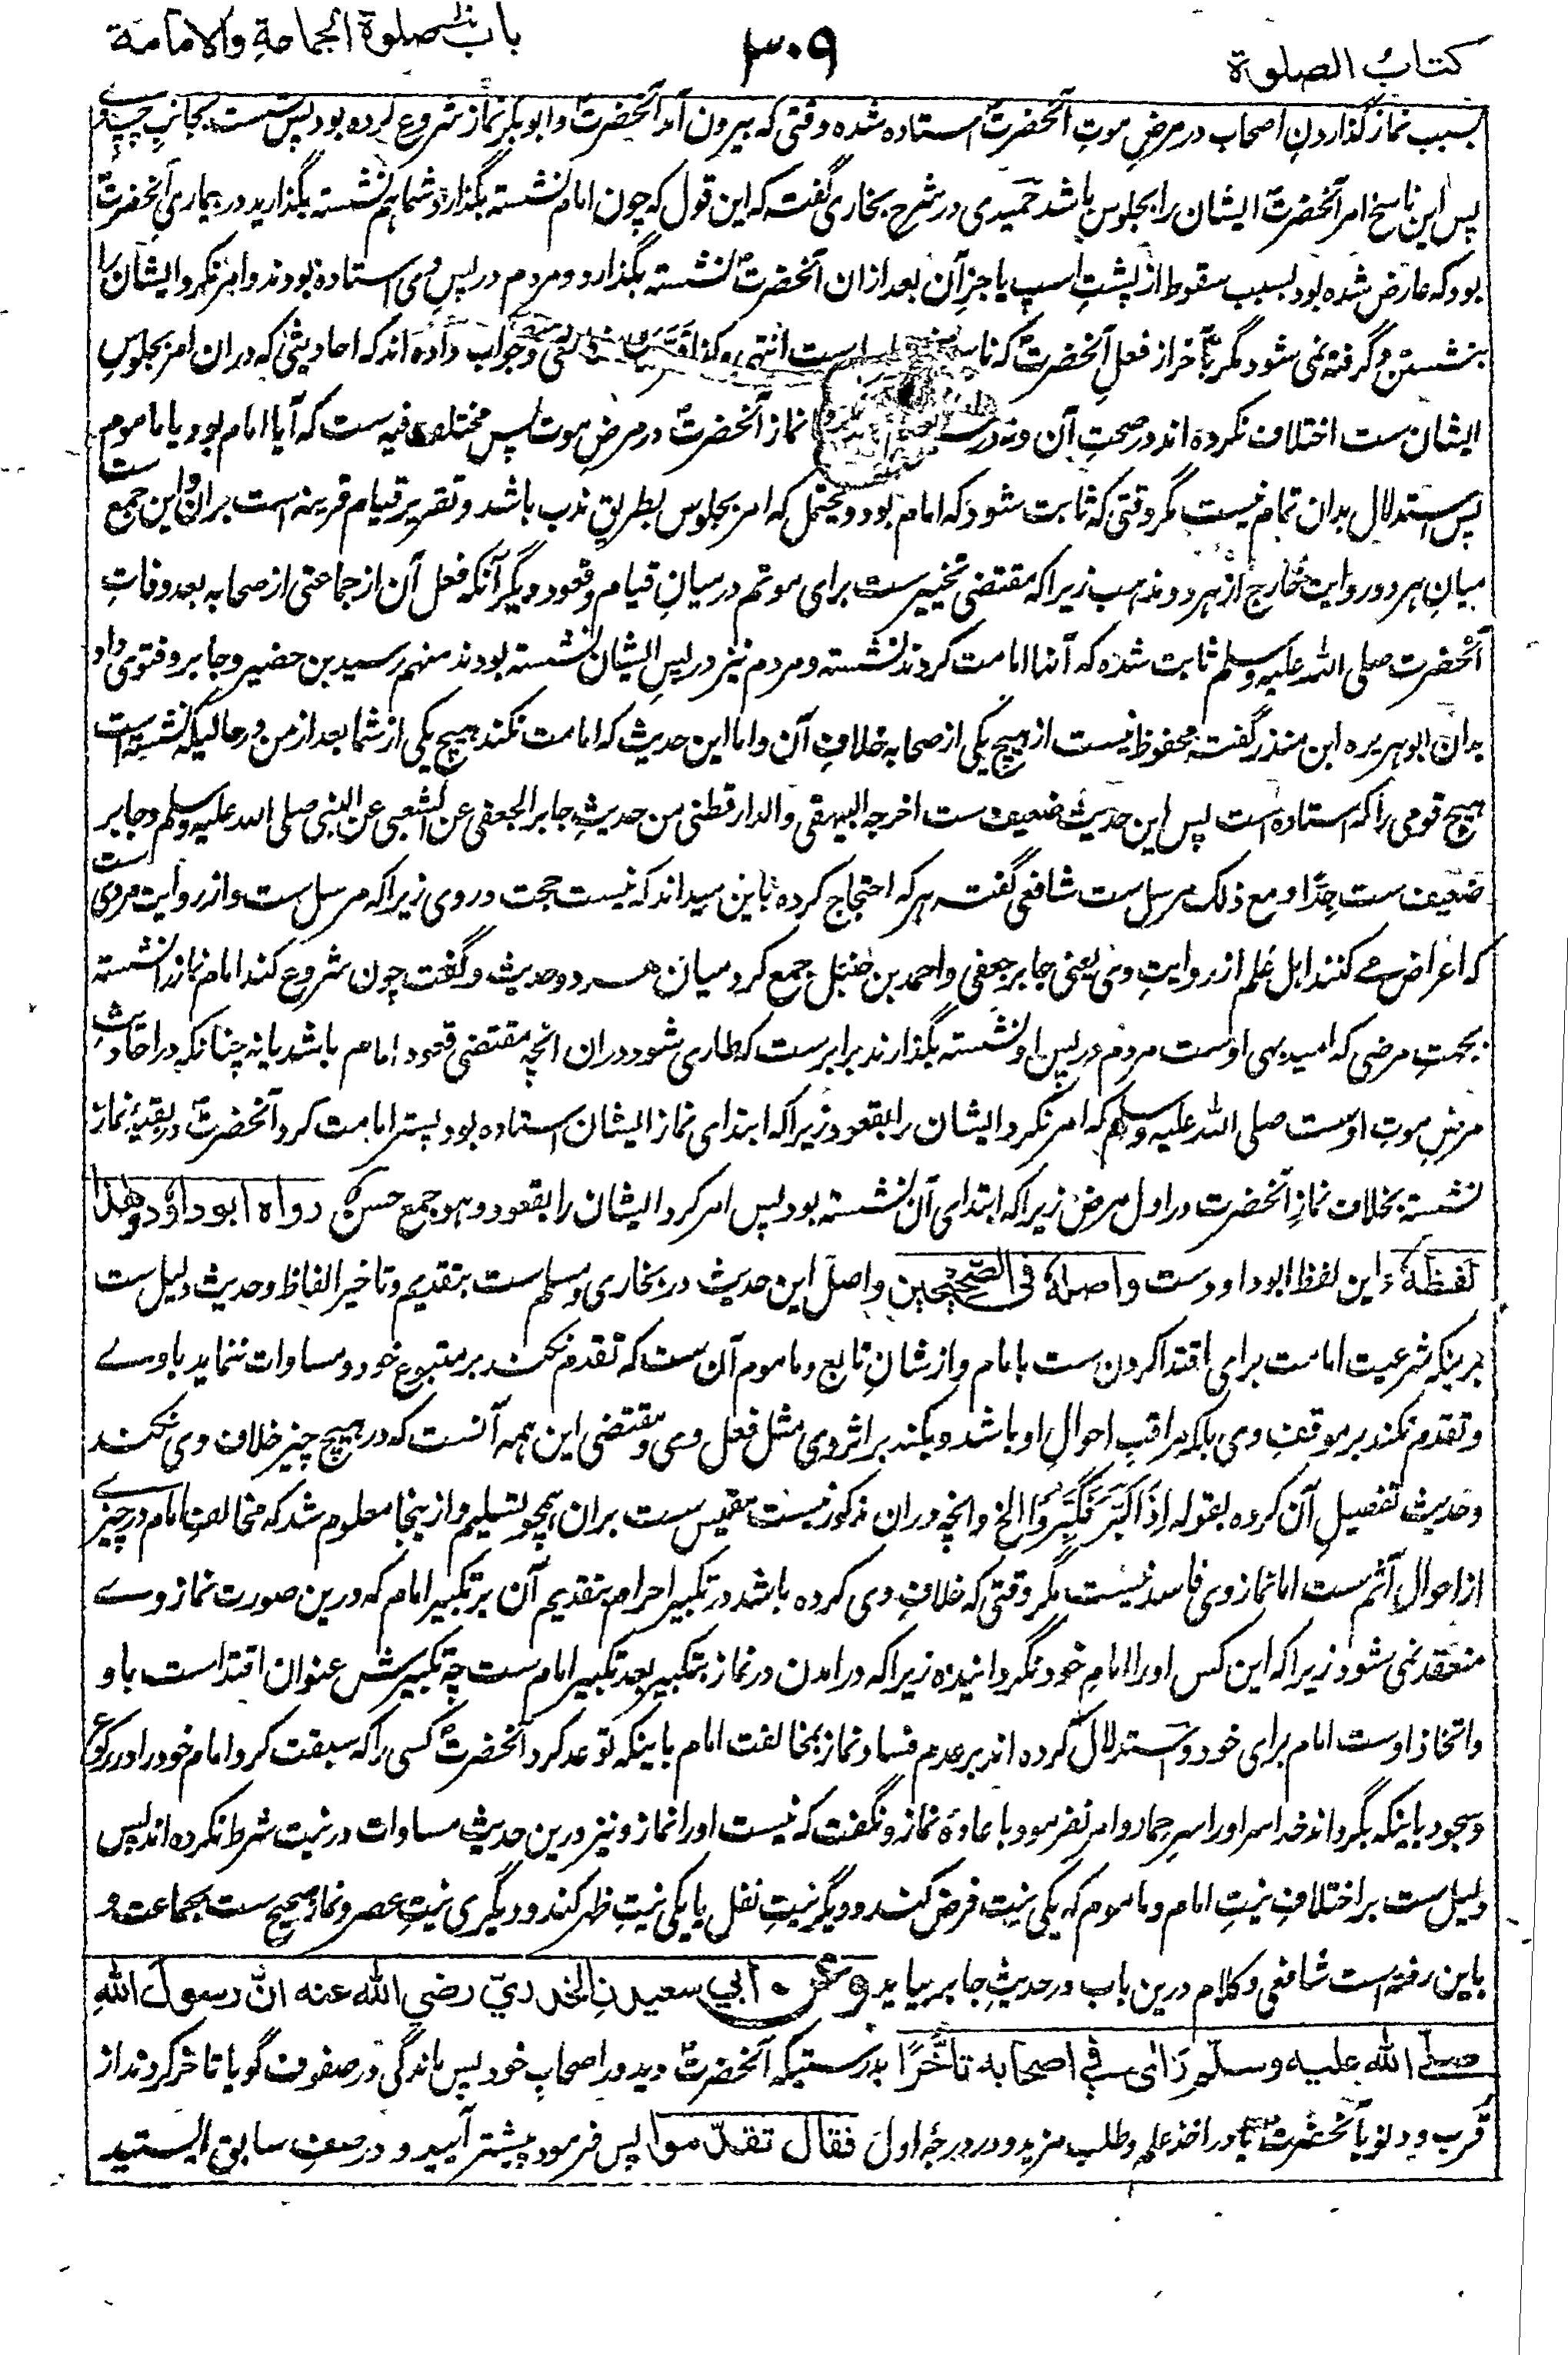 کتاب الصلوة
۳۰۹
باب صلوة الجماعة والامامة
بسبب نماز گذاردن اصحاب در مرض موت آنحضرتؐ استاده شده وقتی که بیرون آمد آنحضرتؐ و ابوبکر نماز شروع کرده بود پس نشست بجانب چپ وے
پس این ناسخ امر آنحضرتؐ ایشان را بجلوس باشد حمیدی در شرح بخاری گفت که این قول که چون امام نشسته بگذارد شما هم نشسته بگذارید در بیماری آنحضرتؐ
بود که عارض شده بود بسبب سقوط از پشتِ اسپ یا جز آن بعد ازان آنحضرتؐ نشسته بگذارد و مردم در پس وی استاده بودند و امر نکرد ایشان را
بنشستن و گرفته نمی شود مگر بآخر از فعل آنحضرتؐ که است انتهی و جواب داده اند که احادیثی که دران امر بجلوس
ایشان ست اختلاف نکرده اند در صحتِ آن و نه در نماز آنحضرتؐ در مرض موت پس مختلف فیه ست که آیا امام بود یا ماموم
پس استدلال بدان تمام نیست مگر وقتی که ثابت شود که امام بود و یحتمل که امر بجلوس بطریق ندب باشد و تقریر قیام قرینه است بران و این جمع ست
میان هر دو روایت خارج از هر دو مذهب زیرا که مقتضی تخییر ست برای موتم در میان قیام و قعود و دیگر آنکه فعل آن از جماعتی از صحابه بعد وفاتِ
آنحضرت صلی الله علیه وسلم ثابت شده که آنها امامت کردند نشسته و مردم نیز در پس ایشان نشسته بودند منهم اسید بن حضیر و جابر و فتوی داد
بدان ابو هریره ابن منذر گفته محفوظ نیست از هیچ یکی از صحابه خلاف آن و اما این حدیث که امامت نکند هیچ یکی از شما بعد از من در حالیکه نشسته است
هیچ قومی را که استاده است پس این حدیث ضعیف ست اخرجه البیهقی والدارقطنی من حدیث جابر الجعفی عن الشعبی عن النبی صلی الله علیه وسلم و جابر
ضعیف ست جدّا و مع ذلک مرسل ست شافعی گفته هر که احتجاج کرده باین میداند که نیست حجت در وی زیرا که مرسل ست و از روایت مردی است
که اعراض مے کنند اهل علم از روایتِ وی یعنی جابر جعفی و احمد بن حنبل جمع کرد میان هر دو حدیث و گفت چون شروع کند امام نماز را نشسته
بجهت مرضی که امید بهی اوست مردم در پس او نشسته بگذارند برابر ست که طاری شود دران انچه مقتضی قعود امام باشد یا نه چنانکه در احادیثِ
مرض موت اوست صلی الله علیه وسلم که امر نکرد ایشان را بقعود زیرا که ابتدای نماز ایشان استاده بود پستر امامت کرد آنحضرتؐ در بقیهٔ نماز
نشسته بخلاف نماز آنحضرت در اول مرض زیرا که ابتدای آن نشسته بود پس امر کرد ایشان را بقعود و هو جمع حسن رواه ابو داؤد وهذا
لفظه و این لفظ ابو داود ست واصله فی الصحیحین و اصل این حدیث در بخاری و مسلم ست بتقدیم و تاخیر الفاظ و حدیث دلیل ست
برینکه شرعیت امامت برای اقتدا کردن ست با امام و از شان تابع و ماموم آن ست که تقدم نکند بر متبوع خود و مساوات ننماید با وے
و تقدم نکند بر موقفِ وی بلکه مراقبِ احوال او باشد و بکند بر اثر وی مثل فعل وی و مقتضی این همه آنست که در هیچ چیز خلاف وی نکند
و حدیث تفصیل آن کرده بقوله اِذَا کَبَّرَ فَکَبِّرُوا الخ و انچه دران مذکور نیست مقیس ست بران همچو تسلیم و ازینجا معلوم شد که مخالفِ امام در چیزے
از احوال آثم ست اما نماز وی فاسد نیست مگر وقتی که خلاف وی کرده باشد در تکبیر احرام بتقدیم آن بر تکبیر امام که درین صورت نماز وے
منعقد نمی شود زیرا که این کس او را امام خود نگردانیده زیرا که در امدن در نماز بتکبیر بعد تکبیر امام ست چه تکبیرش عنوان اقتدا ست باو
و اتخاذ اوست امام برای خود و استدلال کرده اند بر عدم فساد نماز بمخالفت امام باینکه توعد کرد آنحضرتؐ کسی را که سبقت کرد امام خود را در رکوع
و سجود باینکه بگرداند خدا سر او را سر حمار و امر نفرمود باعادهٔ نماز و نگفت که نیست او را نماز و نیز درین حدیث مساوات در نیت شرط نکرده اند پس
دلیل ست بر اختلاف نیتِ امام و ماموم که یکی نیت فرض کند و دیگر نیتِ نفل یا یکی نیتِ ظهر کند و دیگری نیتِ عصر و نماز صحیح ست بجماعت و
باین رفته است شافعی و کلام درین باب در حدیث جابر بیاید وعن ابی سعیدنِ الخدریّ رضی الله عنه انّ رسول اللهِ
صلّی الله علیه وسلم رَاٰی فی اصحابه تاَخُّرًا بدرستیکه آنحضرتؐ دید در اصحاب خود پس ماندگی در صفوف گویا تاخر کردند از
قرب و دنو بآنحضرتؐ یا در اخذ علم و طلب مزید و در درجهٔ اول فقال تقدّموا پس فرمود پیشتر آیید و در صف سابق ایستید